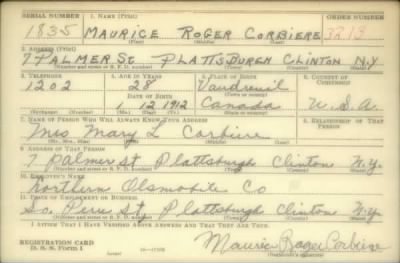 SERIAL NUMBER 1. NAME (Print) ORDER NUMBER
1835 MAURICE ROGER CORBIERE 3213
(First) (Middle) (Last)
2. ADDRESS (Print)
7 PALMER St PLATTSBURGH CLINTON N.Y.
(Number and street or R. F. D. number) (Town) (County) (State)
3. TELEPHONE 4. AGE IN YEARS 5. PLACE OF BIRTH 6. COUNTRY OF CITIZENSHIP
1202 28 Vaudreuil
DATE OF BIRTH (Town or county)
1 12 1912 Canada U.S.A.
(Exchange) (Number) (Mo.) (Day) (Yr.) (State or country)
7. NAME OF PERSON WHO WILL ALWAYS KNOW YOUR ADDRESS 8. RELATIONSHIP OF THAT PERSON
Mrs Mary L Corbiere
9. ADDRESS OF THAT PERSON
7 Palmer St Plattsburgh Clinton N.Y.
(Number and street or R. F. D. number) (Town) (County) (State)
10. EMPLOYER'S NAME
Northern Olsmobile Co
11. PLACE OF EMPLOYMENT OR BUSINESS
So. Peru St Plattsburgh Clinton N.Y.
(Number and street or R. F. D. number) (Town) (County) (State)
I AFFIRM THAT I HAVE VERIFIED ABOVE ANSWERS AND THAT THEY ARE TRUE.
REGISTRATION CARD
D. S. S. Form 1
Maurice Roger Corbiere
(Registrant's signature)